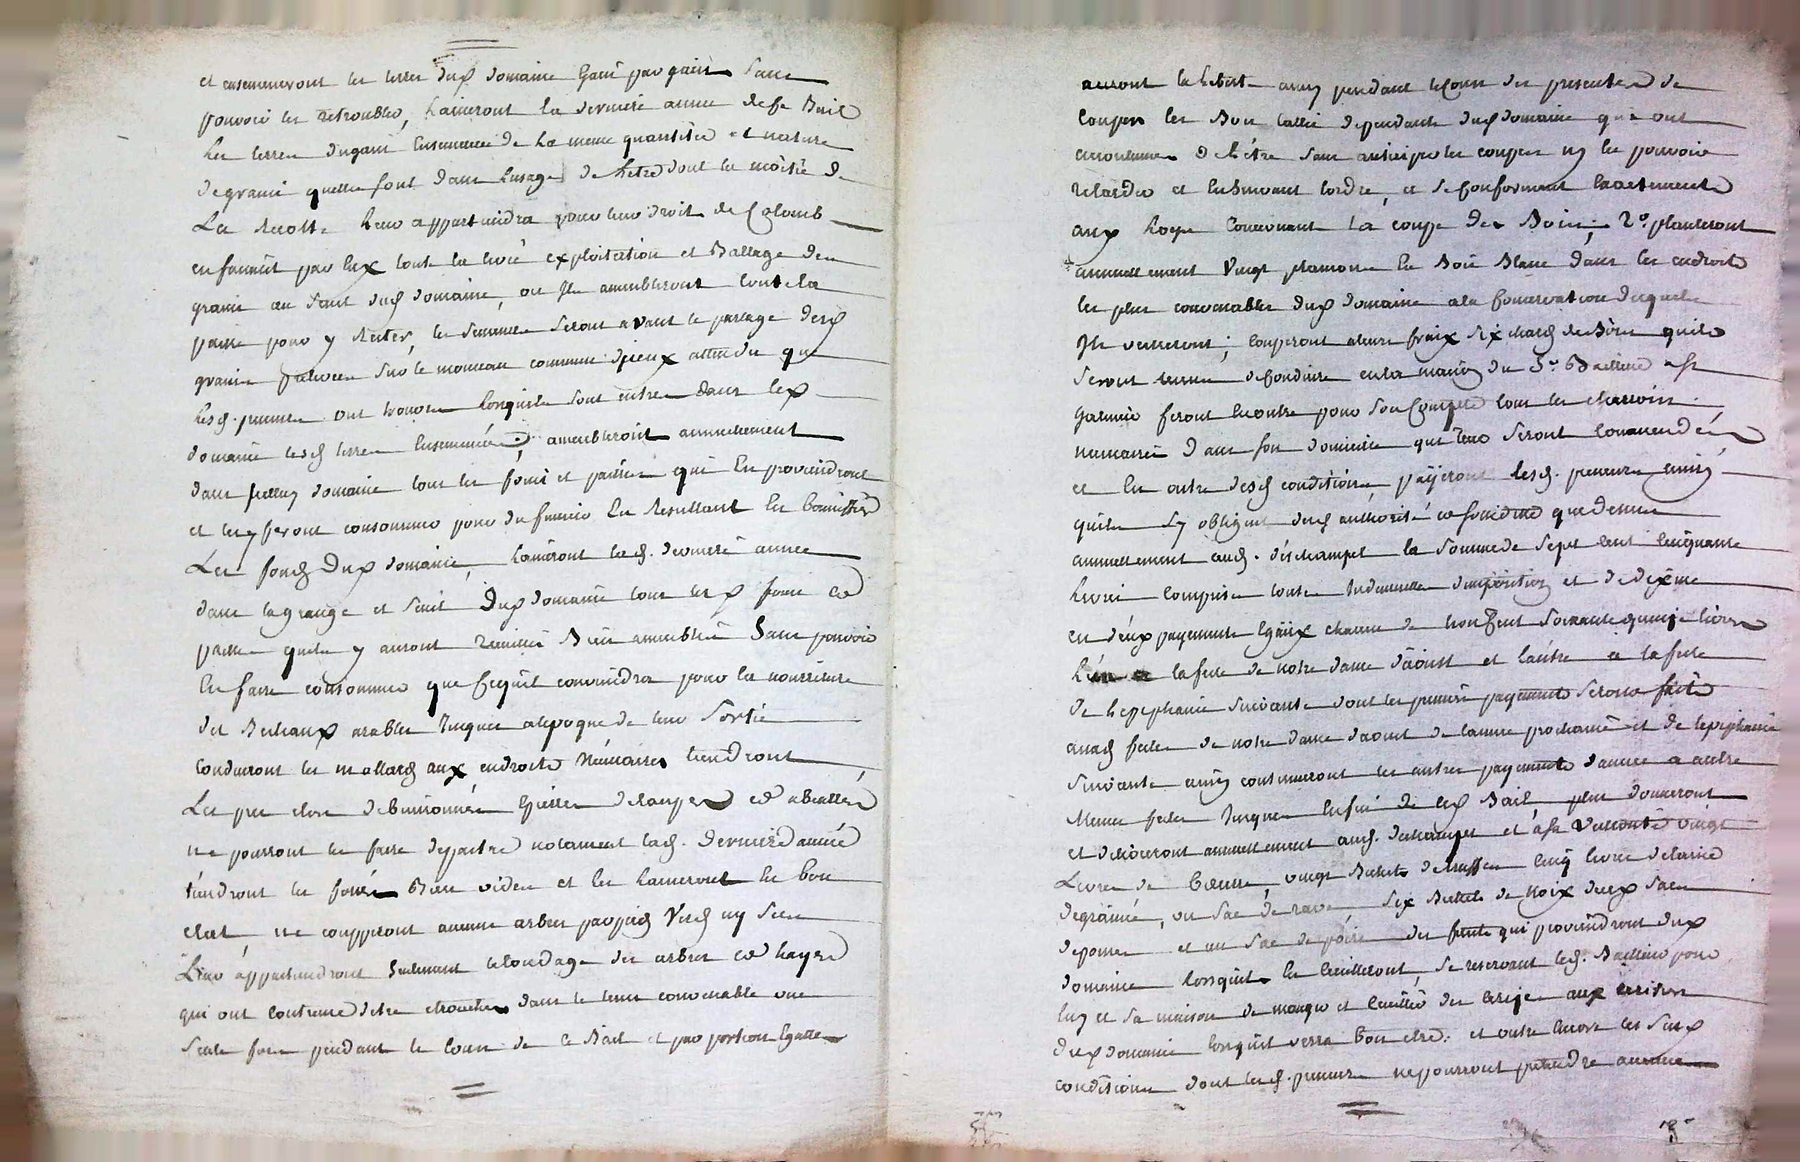 et ensemenceront les terres dud domaine gain par gain sans
pouvoir les retroubler, laisseront la derniere année de ce Bail
les terres dugain ensemencée de la meme quantitée et nature
de grains quelles sont dans lusage de letre dont la moitié de
La recolte leur appartiendra pour leur droit de Colomb
en faisant par eux toute la levée exploitation et Battage des
grains au suil dud domaine, ou ils ameubleront toute la
paille pour y rester, les semences seront avant le partage desd
grains prelevées sur le monceau commun diceux attendu que
lesd. preneurs ont trouvé lorsquils sont entrés dans led
domaine lesd terres ensemencées; ameubleront annuellement
dans icelluy domaine tous les foins et pailles qui en proviendront
et les y feront consommer pour du fumier en resultant en bonniffier
Les fonds dud domaine, laisseront lad. derniere année
dans la grange et suil dud domaine tous lesd foins et
pailles quils y auront recueillis Bien ameublés sans pouvoir
en faire consommer que ce quil conviendra pour la nourriture
des Bestiaux arables jusques alepoque de leur sortie
conduiront les mollards aux endroits nécéssaires tiendront
Les prés clos debuissonnés epierrés detaupés et abeallés
ne pourront les faire depaitre notament lad. derniere année
tiendront les fossés Bien vidés et les laisseront en bon
etat, ne coupperont aucuns arbres par pied Verd ny sec
Leur appartiendront seulement lelondage des arbres et hayes
qui ont coutume detre etronchés dans le tems convenable une
seule fois pendant le cours de ce Bail et par portion Egalle
auront la liberté aussy pendant le cours des presentes de
couper les Bois taillis dependants dud domaine qui ont
accoutumés delêtre sans anticiper les coupes ny les pouvoir
retarder et en suivant lordre, et se conformant exactement
aux loyx concernant la coupe des Bois; 2o. planteront
annuellement vingt plansons en Bois Blanc dans les endroits
les plus convenables dud domaine ala conservation desquels
Ils veilleront; couperont aleurs fraix six chards de Bois quils
seront tenus de conduire en la maison du Sr. Bailleur a St
Germain feront en outre pour son compte tous les charrois
necessaires dans son domicile qui leur seront commandés
et en outre desd conditions payeront lesd. preneurs ainsy
quils sy obligent desd authorité et solidité que dessus
annuellement aud. dechampet la somme de sept cent cinquante
livres comprise toute indemnité dimposition et de dixme
en deux payements egaux chacun de trois cent soixante quinze livres
lun a la fete de notre dame daoust et lautre a la fete
de lepiphanie suivante dont les premiers payements seront faits
auxd fetes de notre dame daoust de lannée prochaine et de lepiphanie
suivante ainsy continueront les autres payements dannée a autre
Memes fetes jusques enfin de ced Bail plus donneront
et delivreront annuellement aud. dechampet et a sa volonté vingt
Livres de Beurre, vingt Bichets de truffes cinq livres de laine
degraissée, un sac de raves six Bichets de noix deux sacs
de pommes et un sac de poires des fruits qui proviendront dud
domaine lorsquils en cueilleront, se reservant led. Bailleur pour
luy et sa maison de manger et cueillir des cerises aux cerisiers
dud domaine lorsquil verra bon etre. et outre encore les susd
conditions dont lesd. preneurs ne pourront pretendre aucune